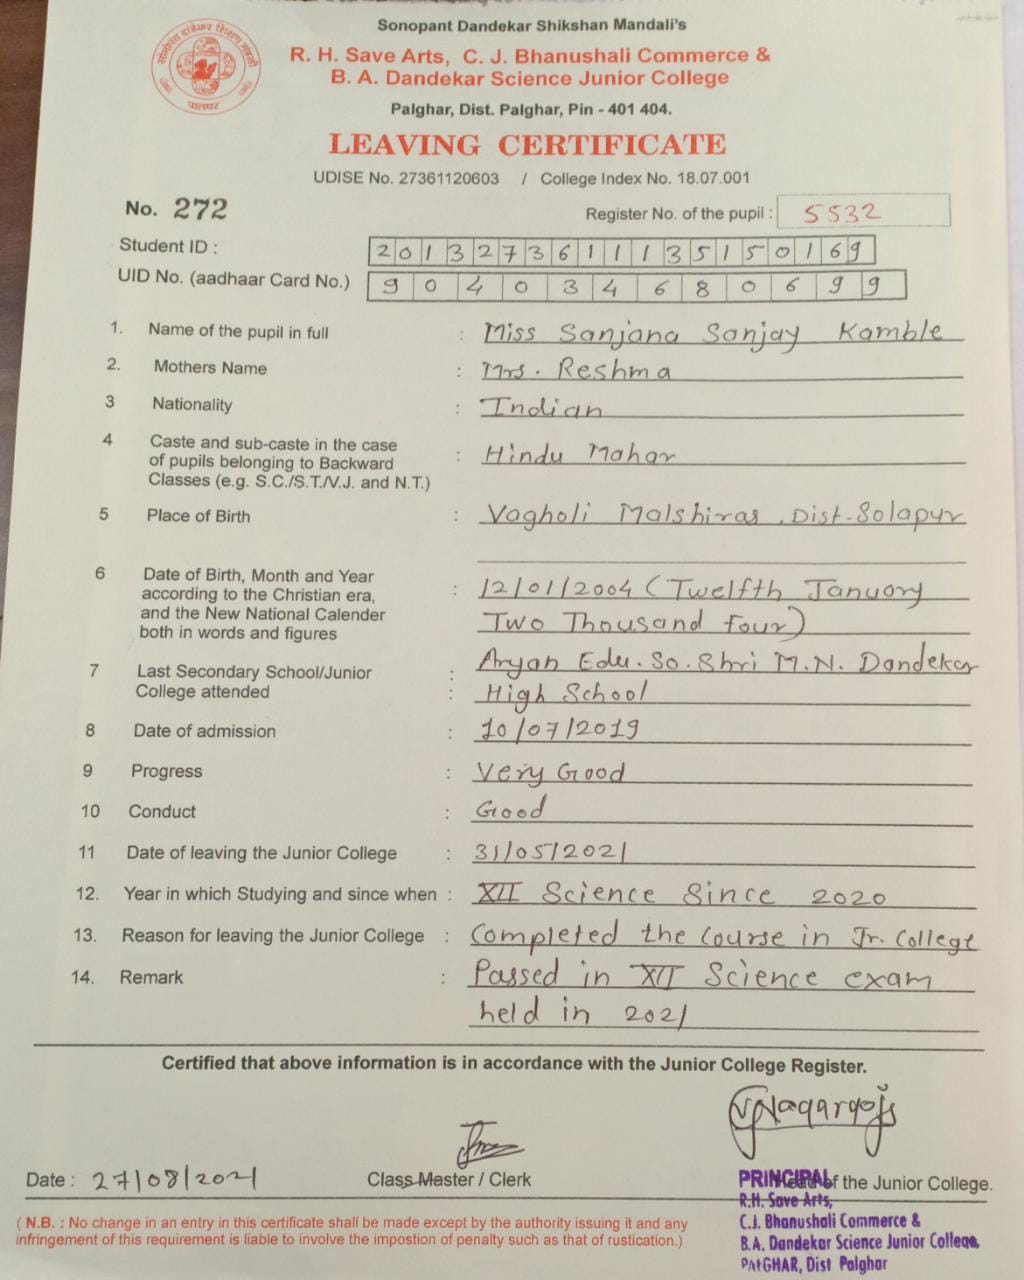 Sonopant Dandekar Shikshan Mandali's
R. H. Save Arts, C. J. Bhanushali Commerce &
B. A. Dandekar Science Junior College
Palghar, Dist. Palghar, Pin - 401 404.
पालघर
LEAVING CERTIFICATE
UDISE No. 27361120603 / College Index No. 18.07.001
No. 272
Register No. of the pupil : 5532
Student ID : 2013273611135150169
UID No. (aadhaar Card No.) 904034680699
1. Name of the pupil in full : Miss Sanjana Sanjay Kamble
2. Mothers Name : Mrs. Reshma
3 Nationality : Indian
4 Caste and sub-caste in the case : Hindu Mahar
of pupils belonging to Backward
Classes (e.g. S.C./S.T./V.J. and N.T.)
5 Place of Birth : Vagholi Malshiras, Dist-Solapur
6 Date of Birth, Month and Year : 12/01/2004 (Twelfth January
according to the Christian era,
and the New National Calender Two Thousand Four)
both in words and figures
7 Last Secondary School/Junior : Aryan Edu. So. Shri M.N. Dandekar
College attended : High School
8 Date of admission : 10/07/2019
9 Progress : Very Good
10 Conduct : Good
11 Date of leaving the Junior College : 31/05/2021
12. Year in which Studying and since when : XII Science Since 2020
13. Reason for leaving the Junior College : Completed the Course in Jr. College
14. Remark : Passed in XII Science exam
held in 2021
Certified that above information is in accordance with the Junior College Register.
Date : 27/08/2021
Class Master / Clerk
PRINCIPAL of the Junior College.
R.H. Save Arts,
C.J. Bhanushali Commerce &
B.A. Dandekar Science Junior College,
PALGHAR, Dist Palghar
( N.B. : No change in an entry in this certificate shall be made except by the authority issuing it and any
infringement of this requirement is liable to involve the impostion of penalty such as that of rustication.)